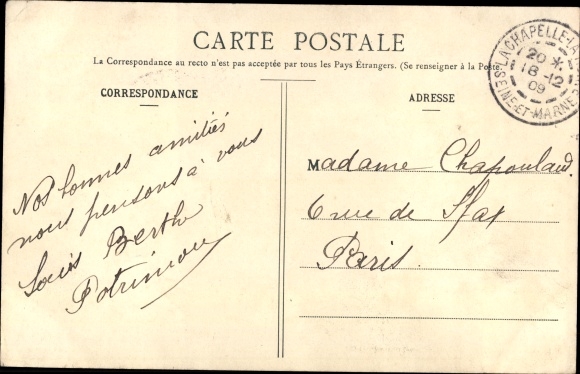 CARTE POSTALE
La Correspondance au recto n'est pas acceptée par tous les Pays Étrangers. (Se renseigner à la Poste.
CORRESPONDANCE
ADRESSE
LA CHAPELLE-LA
20 *
18-12
09
SEINE-ET-MARNE
Nos bonnes amitiés
nous pensons à vous
Louis Berthe
Madame Chapouland.
6 rue de Sfax
Paris.